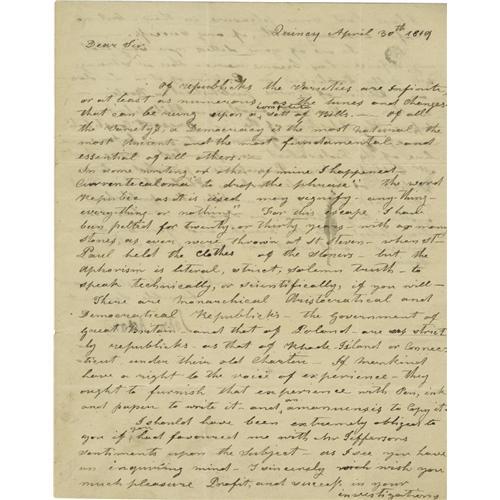 Quincy April 30th 1819
Dear Sir,
Of republicks the varieties are infinite,
or at least as numerous as the tunes and changes
that can be rung upon a complete sett of Bells. — Of all
the Varietys, a Democracy is the most natural the
most ancient and the most fundamental and
essential of all others.
In some writing or other of mine I happened
Currente calomo to drop the phrase "The word
Republic as it is used may signify anything —
everything or nothing." For this escape I have
been pelted for twenty or thirty years — with as many
stones, as ever were thrown at St Steven — when St
Paul held the clothes of the stoners — but the
Aphorism is literal, strict, solemn truth — to
speak technically, or scientifically, if you will —
There are Monarchical Aristocratical and
Democratical Republicks — the government of
great Britain and that of Poland — are as strict
ly republicks as that of Rhode Island or Connec
ticut under their old Charter — If mankind
have a right to the voice of experience — they
ought to furnish that experience with Pen, ink
and paper to write it — and an amanuensis to copy it —
I should have been extremely obliged to
you if you had favoured me with Mr Jeffersons
sentiments upon the subject — as I see you have
an inquiring mind — I sincerely wish you
much pleasure Profit, and success in your
investigations